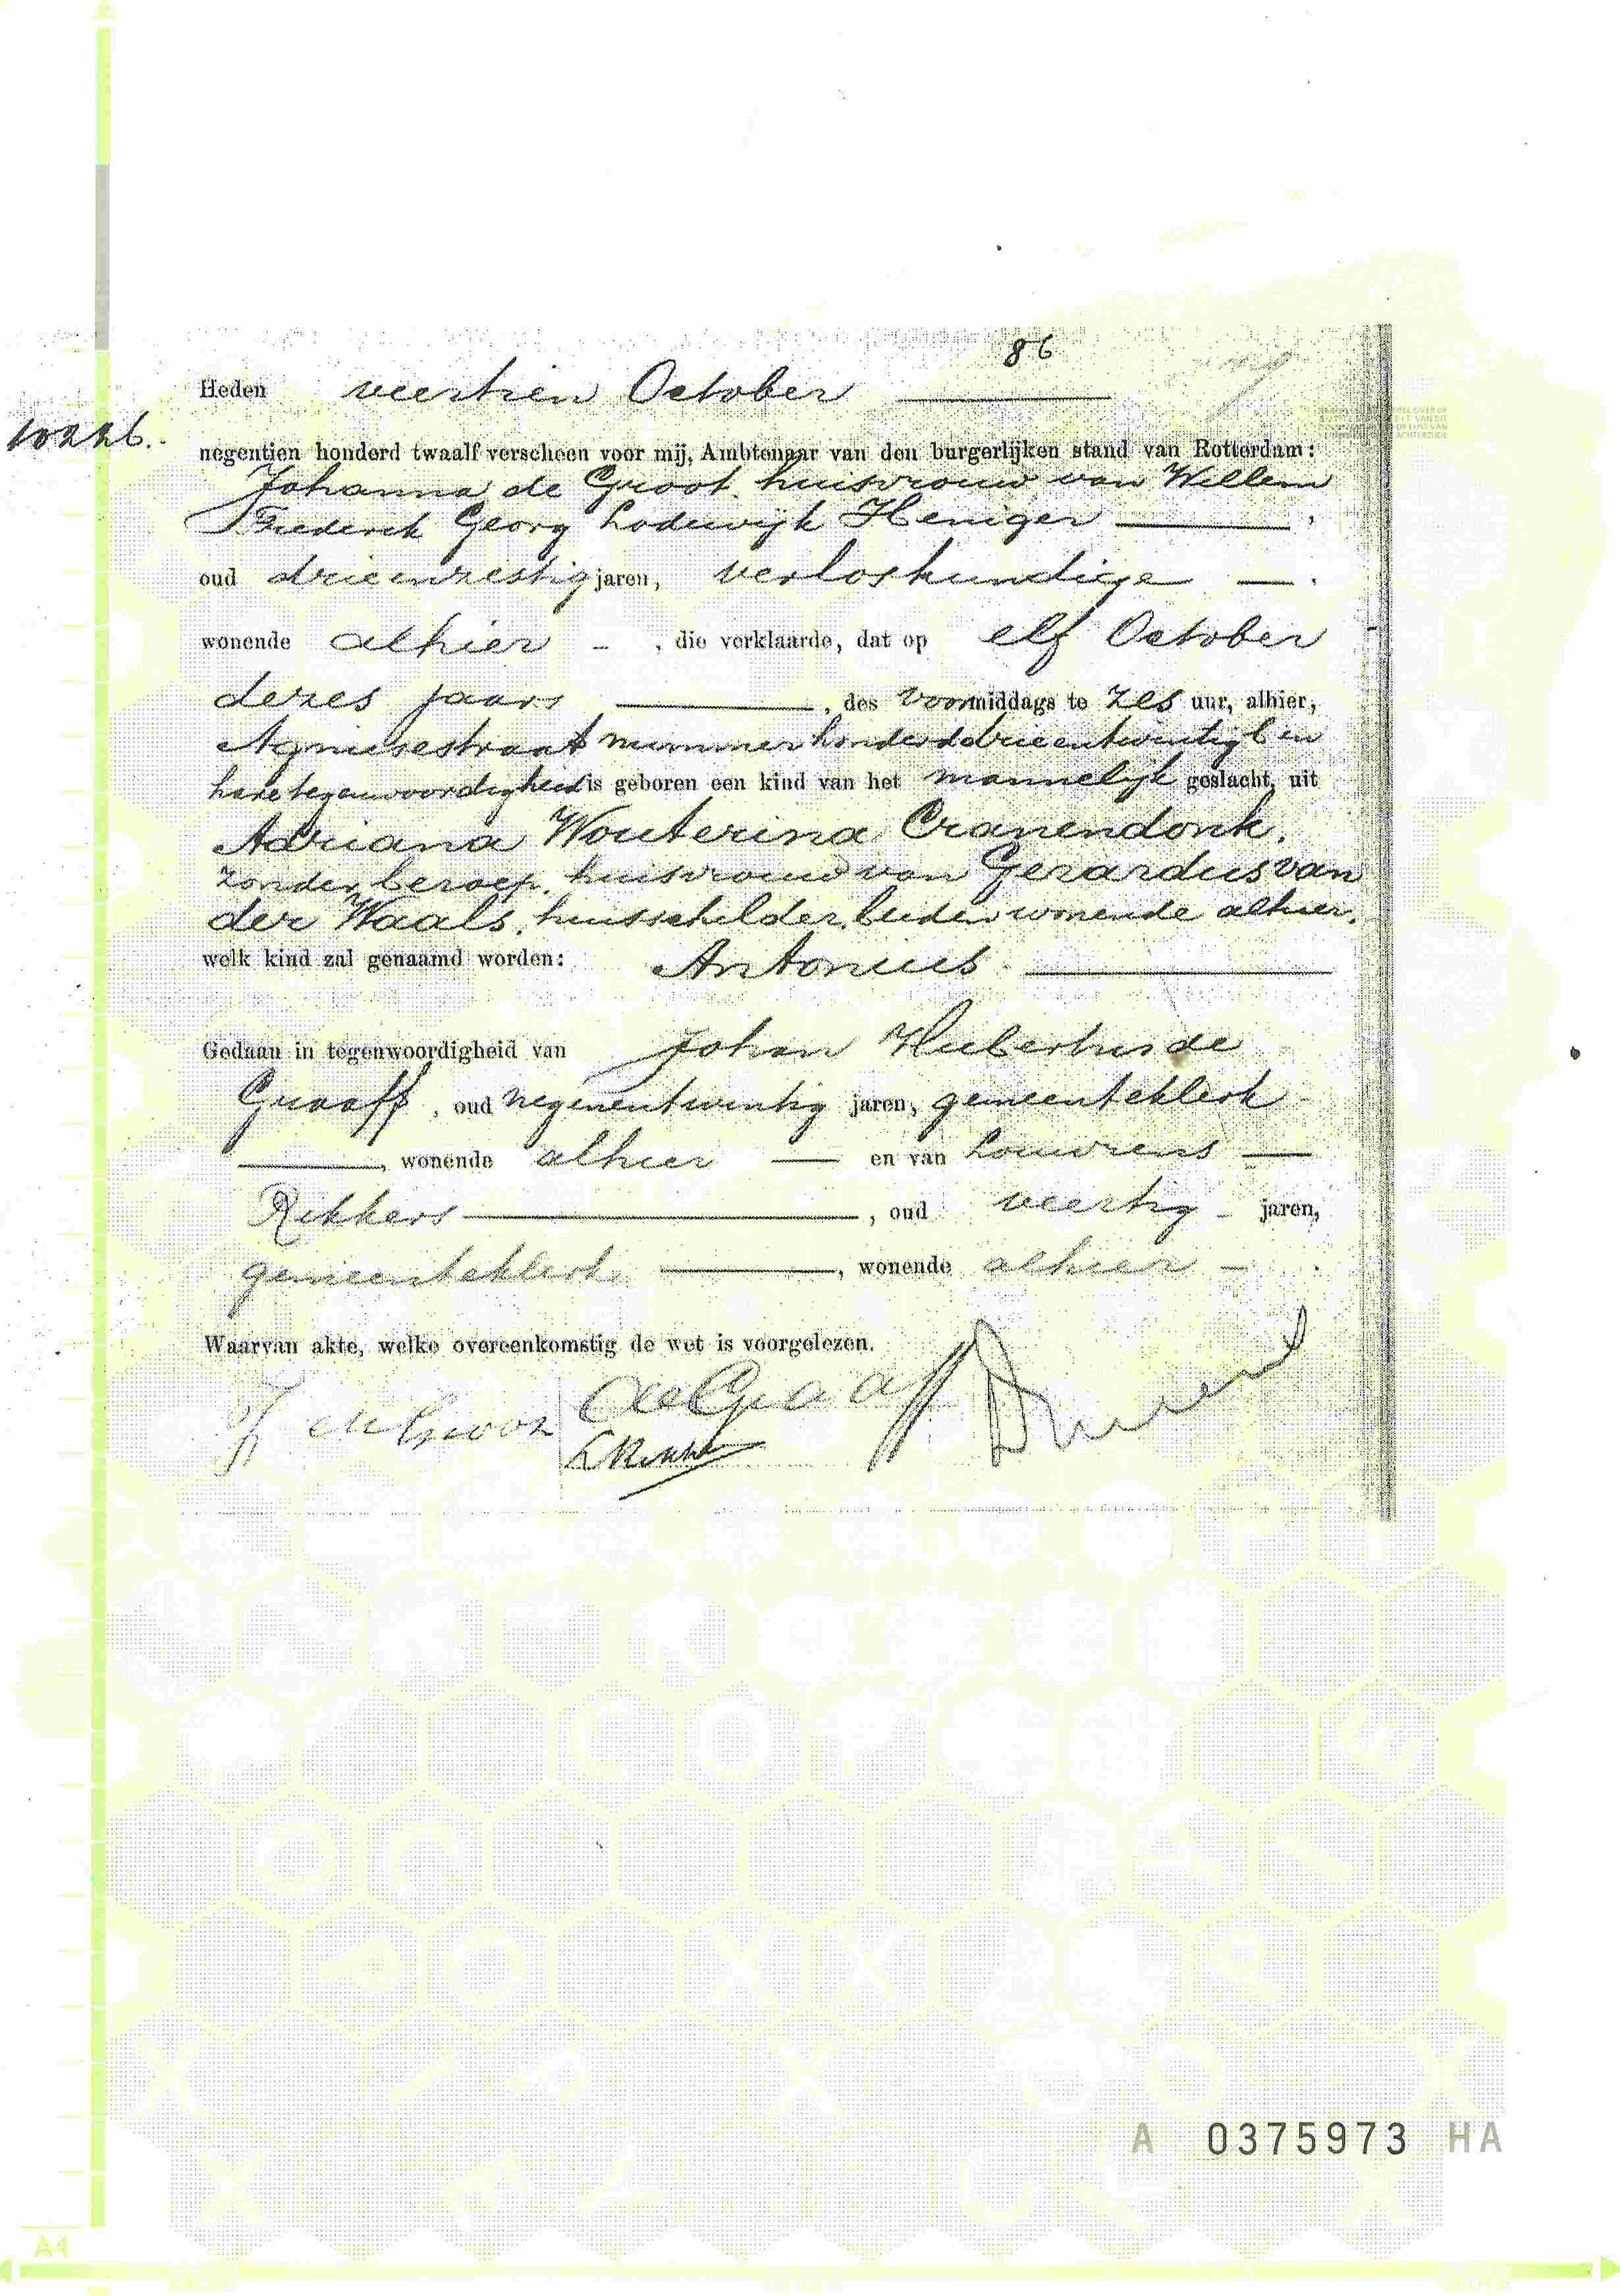 86
Heden veertien October
10226.
negentien honderd twaalf verscheen voor mij, Ambtenaar van den burgerlijken stand van Rotterdam:
Johanna de Groot, huisvrouw van Willem
Frederik Georg Lodewijk Heniger ,
oud drieenzestig jaren, verloskundige ,
wonende alhier , die verklaarde, dat op elf October
dezes jaars , des voormiddags te zes uur, alhier,
Agniesestraat nummer honderd drieentwintig b in
hare tegenwoordigheid is geboren een kind van het mannelijk geslacht, uit
Adriana Wouterina Cranendonk,
zonder beroep, huisvrouw van Gerardus van
der Waals, huisschilder, beiden wonende alhier,
welk kind zal genaamd worden: Antonius.
Gedaan in tegenwoordigheid van Johan Hubertus de
Graaff, oud negenentwintig jaren, gemeenteklerk
, wonende alhier en van Louwrens
Rikkers , oud veertig jaren,
gemeenteklerk , wonende alhier .
Waarvan akte, welke overeenkomstig de wet is voorgelezen.
J de Groot de Graaff
L Rikkers
A 0375973 HA
A4